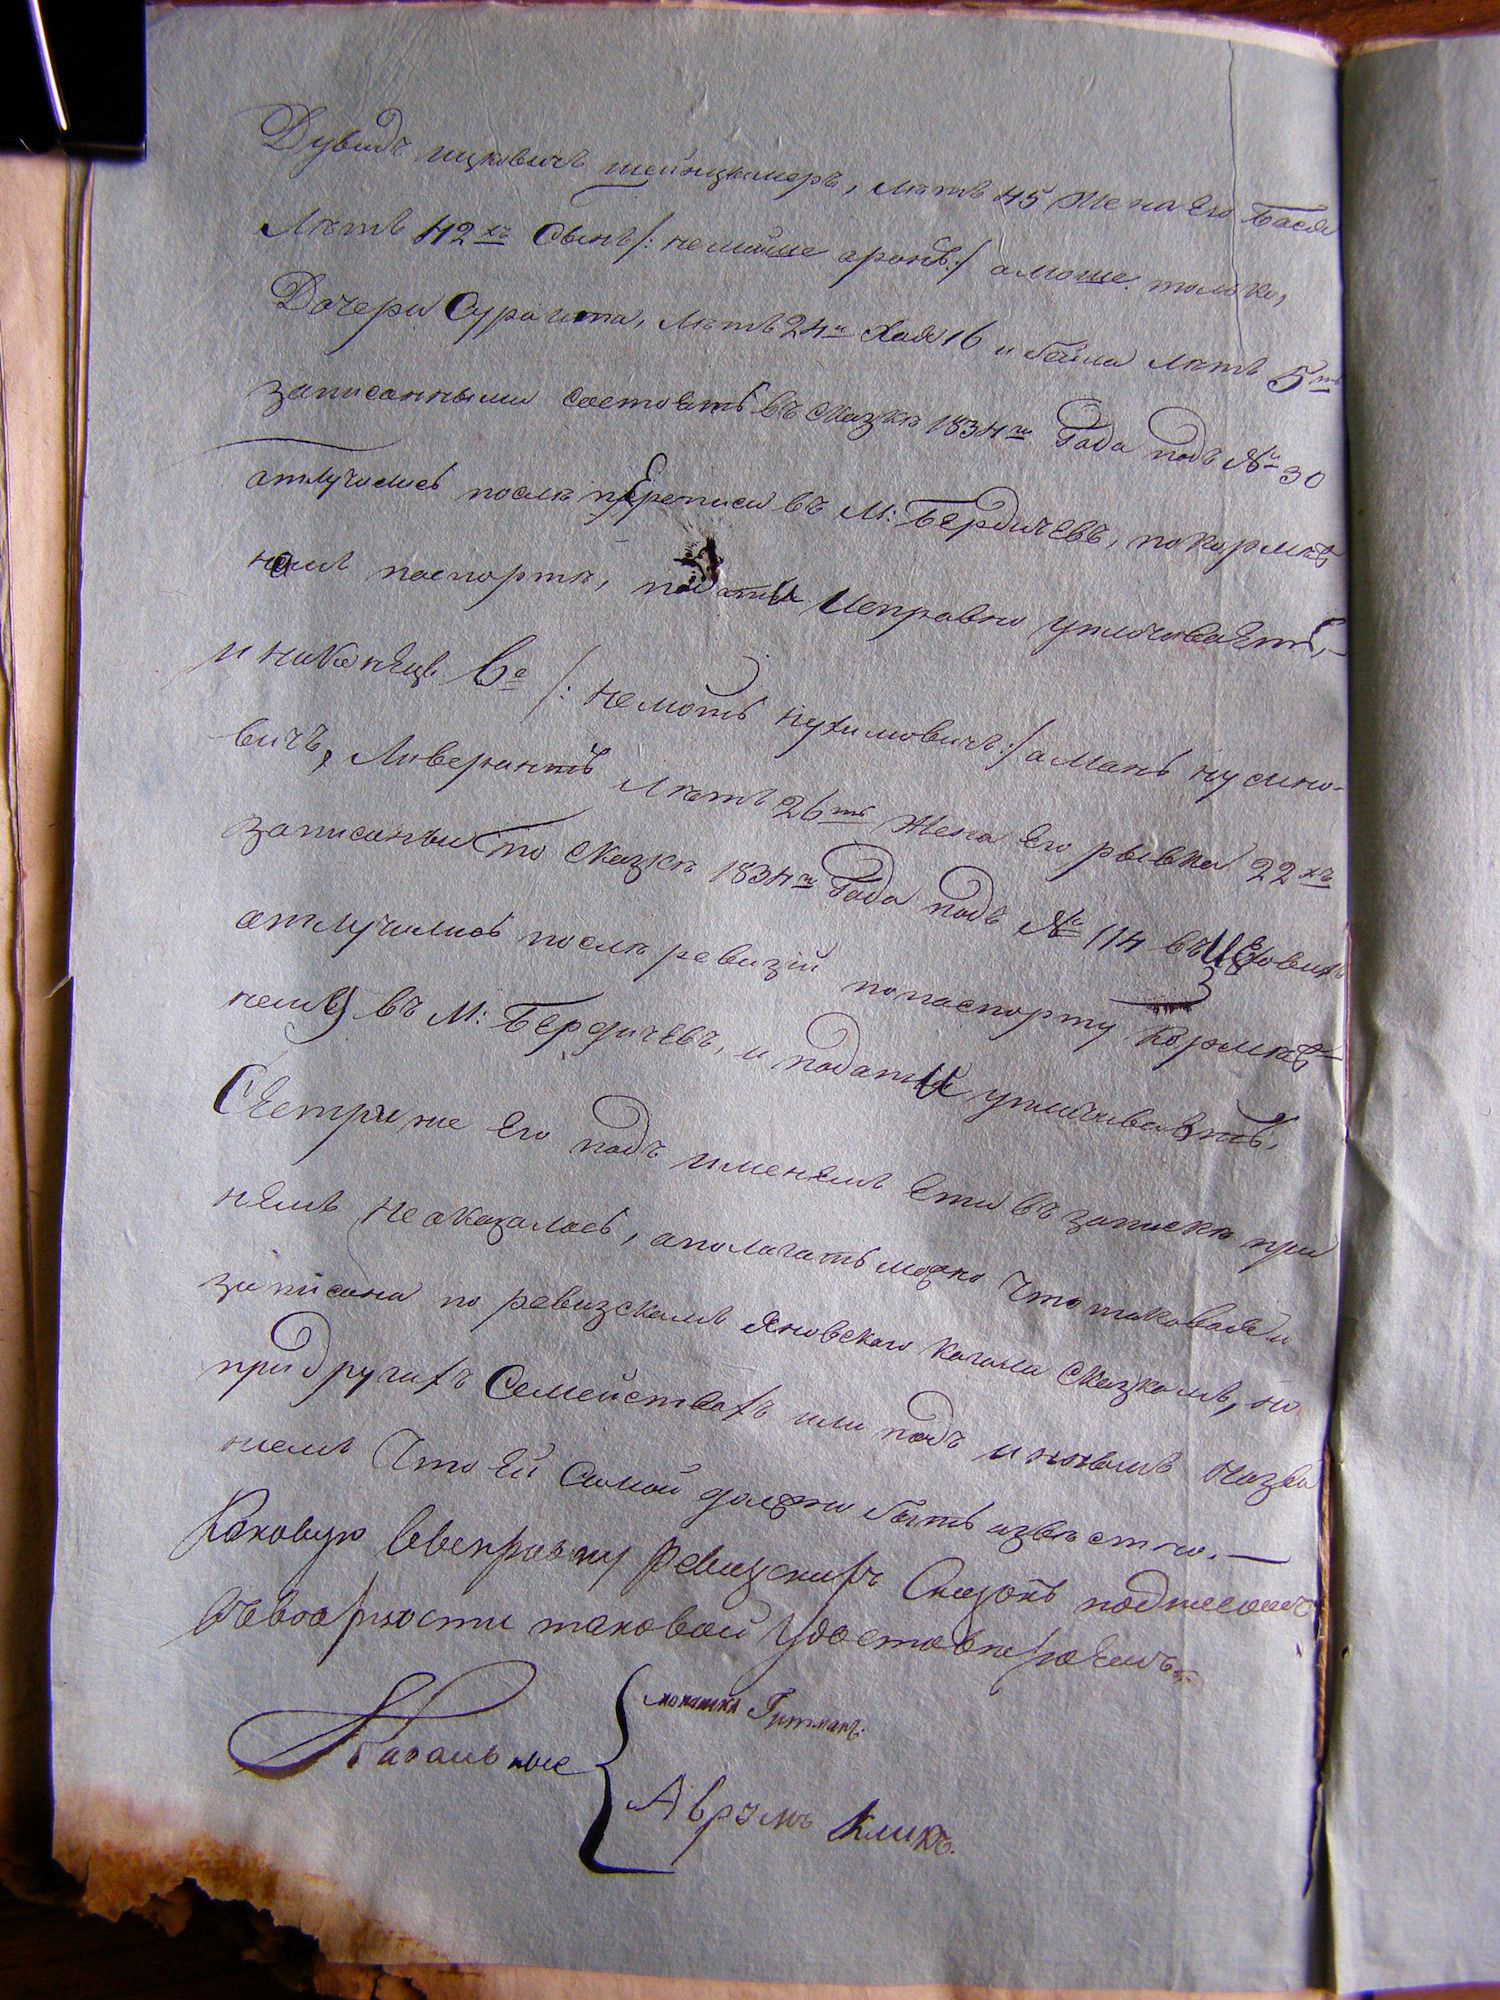 Дувидъ ицковичъ шейнцымеръ, летъ 45 жена Его Бася
Летъ 42хъ Сынъ /: не мойше аронъ :/ а моше только,
Дочери Сура гита, летъ 24и Хая 16 и бейла летъ 5ть
записанными состоятъ въ сказке 1834го Года подъ № 30
отлучились после пЕреписи въ М: БЕрдичЕвъ, по кормле
номъ паспорте, подати Исправно уплочиваЕтъ,
и наконецъ 6е /: не мотъ нухимовичъ :/ а Манъ нусино-
вичъ, Ливерантъ летъ 26ть жена Его рывка 22хъ
записаны по сказке 1834го Года подъ № 114 въ
отлучились после ревизiи по паспорту кормле
номъ въ М: БЕрдичЕвъ, и подати уплачиваютъ,
СЕстри же Его подъ именемъ Ети въ записке при
немъ не оказалось, а полагать можно что таковая и
записана по ревизскамъ Яновского кагала сказкамъ, но
при другихъ Семействахъ или подъ инымъ назва
ниемъ что Ей самой должно быть известно. —
Каковую Выправку Ревизскихъ Сказокъ подписомъ
въ верности таковой удостоверяемъ.
Кагальные
Гитманъ.
Аврумъ Кликъ.